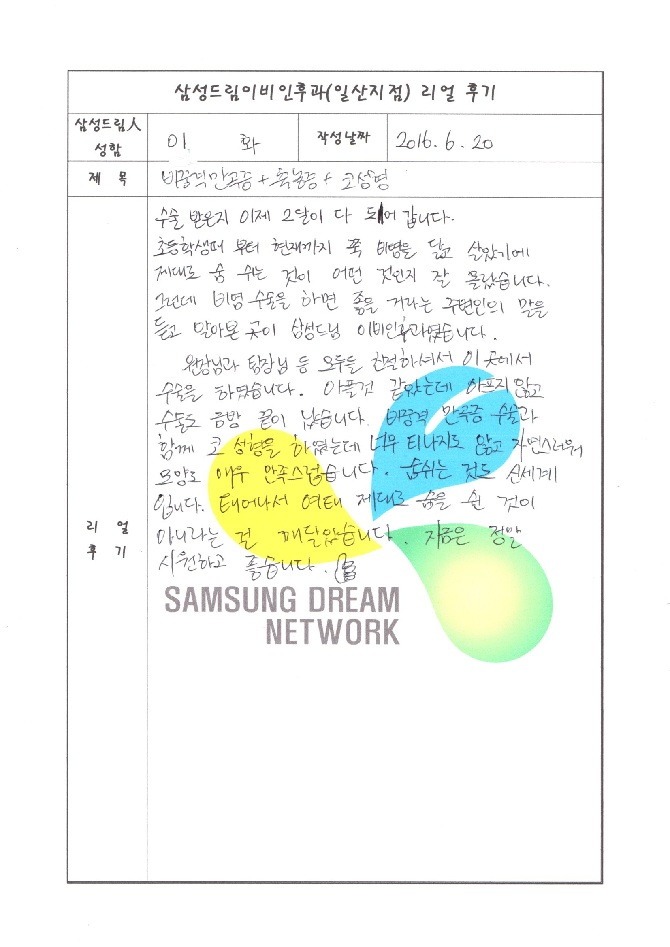 삼성드림이비인후과(일산지점) 리얼 후기
삼성드림人
성함
이 화
작성날짜
2016. 6. 20
제 목
비중격만곡증 + 축농증 + 코성형
수술 받은지 이제 2달이 다 되어 갑니다.
초등학생때 부터 현재까지 쭉 비염을 달고 살았기에
제대로 숨 쉬는 것이 어떤 것인지 잘 몰랐습니다.
그런데 비염 수술을 하면 좋을 거라는 주변인의 말을
듣고 찾아온 곳이 삼성드림 이비인후과였습니다.
원장님과 팀장님 등 모두들 친절하셔서 이 곳에서
수술을 하였습니다. 아플것 같았는데 아프지 않고
수술도 금방 끝이 났습니다. 비중격 만곡증 수술과
함께 코 성형을 하였는데 너무 티나지도 않고 자연스러워
모양도 매우 만족스럽습니다. 숨쉬는 것도 신세계
입니다. 태어나서 여태 제대로 숨을 쉰 것이
아니라는 걸 깨달았습니다. 지금은 정말
시원하고 좋습니다.
리 얼
후 기
SAMSUNG DREAM
NETWORK